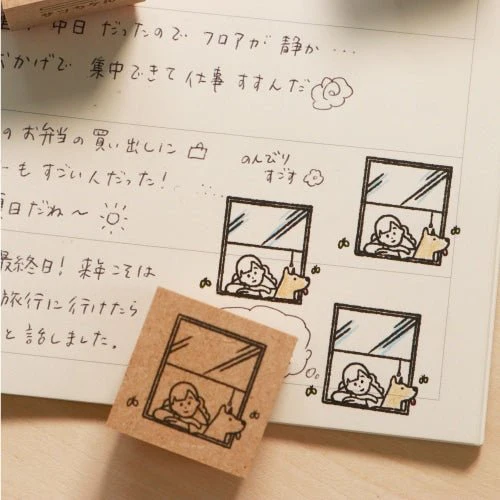 中日 だったので フロアが 静か…
おかげで 集中できて 仕事 すすんだ
の お弁当の買い出しに
ーも すごい人だった!
日だね〜
のんびり
すごす
最終日! 来年こそは
旅行に行けたら
と 話しました。